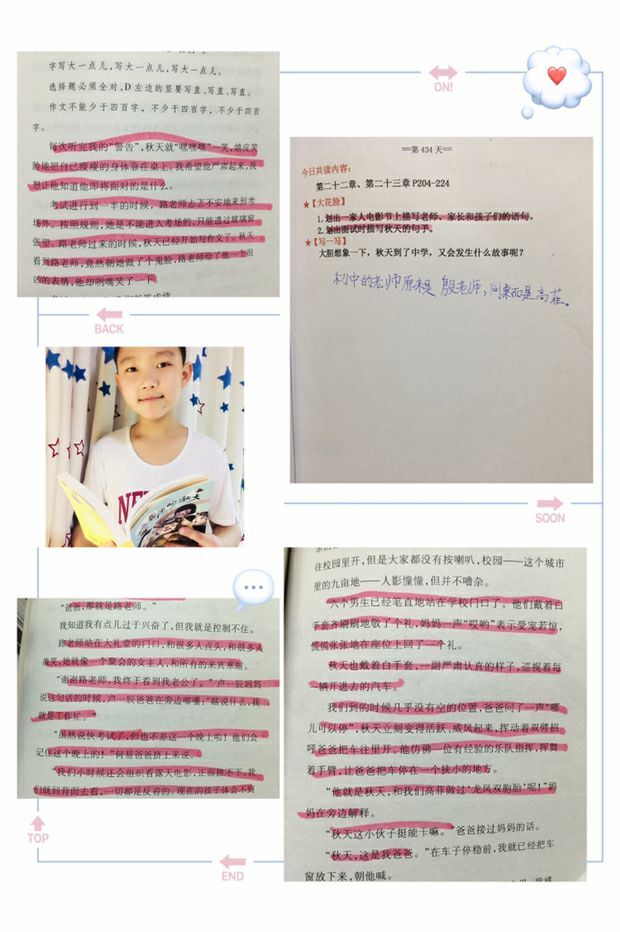 字写大一点儿,写大一点儿,写大一点儿。
选择题必须全对,D左边的竖要写直、写直、写直。
作文不能少于四百字,不少于四百字,不少于四百
字。
每次听完我的“警告”,秋天就“嘿嘿嘿”一笑,嬉皮笑
脸地把自己瘦瘦的身体靠在桌上。我希望他严肃起来,我
想让他知道他即将面对的是什么。
考试进行到一半的时候,路老师忐忑不安地来到考
场外。按照规则,她是不能进入考场的,只能透过玻璃窗
张望。路老师过来的时候,秋天已经开始写作文了。秋天
看到路老师,竟然朝她做了个鬼脸,路老师给了他一个很
凶的表情,他却咧嘴笑了一下
ON!
==第 434 天==
今日共读内容:
第二十二章、第二十三章 P204-224
★【大花脸】
1.划出一家人电影节上描写老师、家长和孩子们的语句。
2.划出面试时描写秋天的句子。
★【写一写】
大胆想象一下,秋天到了中学,又会发生什么故事呢?
初中的老师原来是殷老师,同桌而是高菲。
BACK
SOON
“爸爸,那就是路老师。”
我知道我有点儿过于兴奋了,但我就是控制不住。
路老师站在大礼堂的门口,和很多人点头,和很多人
微笑,她就像一个聚会的女主人,和所有的来宾寒暄。
“谢谢路老师,我终于看到我老公了。”卢一辰妈妈
说这句话的时候,卢一辰爸爸在旁边嘟囔:“瞎说什么,我
就是工作忙。”
“虽然说快考试了,但也不差这一个晚上啦!他们会
记住这个晚上的!”何易爸爸挤上来说。
“我们小时候还会组织看露天电影,正面挤不下,我
们就到背面去看,一切都是反着的。现在的孩子体会不到
往校园里开,但是大家都没有按喇叭,校园——这个城市
里的九亩地——人影憧憧,但并不嘈杂。
六个男生已经笔直地站在学校门口了。他们戴着白
手套齐刷刷地敬了个礼,妈妈一声“哎哟”表示受宠若惊,
慌慌张张地在座位上回了一个礼。
秋天也戴着白手套,一副严肃认真的样子,巡视着每
一辆开进去的汽车。
我们到的时候几乎没有空的位置,爸爸问了一声“哪
儿可以停”,秋天立刻变得活跃、威风起来,挥动着双臂招
呼爸爸把车往里开。他仿佛一位有经验的乐队指挥,挥舞
着手臂,让爸爸把车停在一个狭小的地方。
“他就是秋天,和我们高菲做过‘龙凤双胞胎’呢!”妈
妈在旁边解释。
“秋天这小伙子挺能干嘛。”爸爸接过妈妈的话。
“秋天,这是我爸爸。”在车子停稳前,我就已经把车
窗放下来,朝他喊。
TOP
END